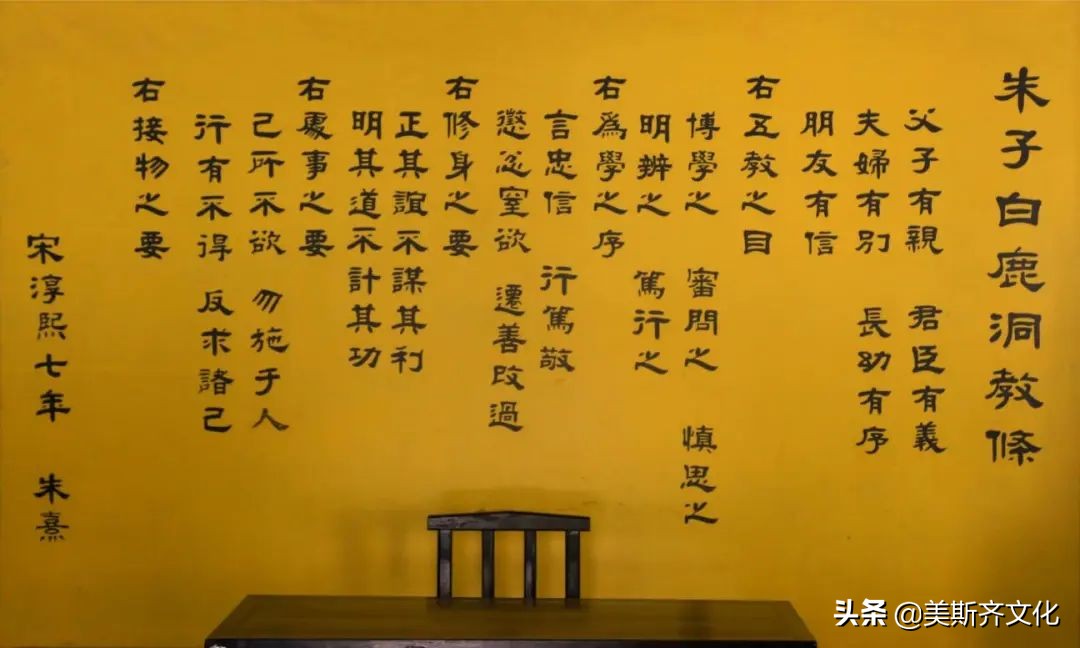 朱子白鹿洞教條
父子有親 君臣有義
夫婦有別 長幼有序
朋友有信
右五教之目
博學之 審問之 慎思之
明辨之 篤行之
右為學之序
言忠信 行篤敬
懲忿窒欲 遷善改過
右修身之要
正其誼不謀其利
明其道不計其功
右處事之要
己所不欲 勿施于人
行有不得 反求諸己
右接物之要
宋淳熙七年 朱熹
头条 @美斯齐文化